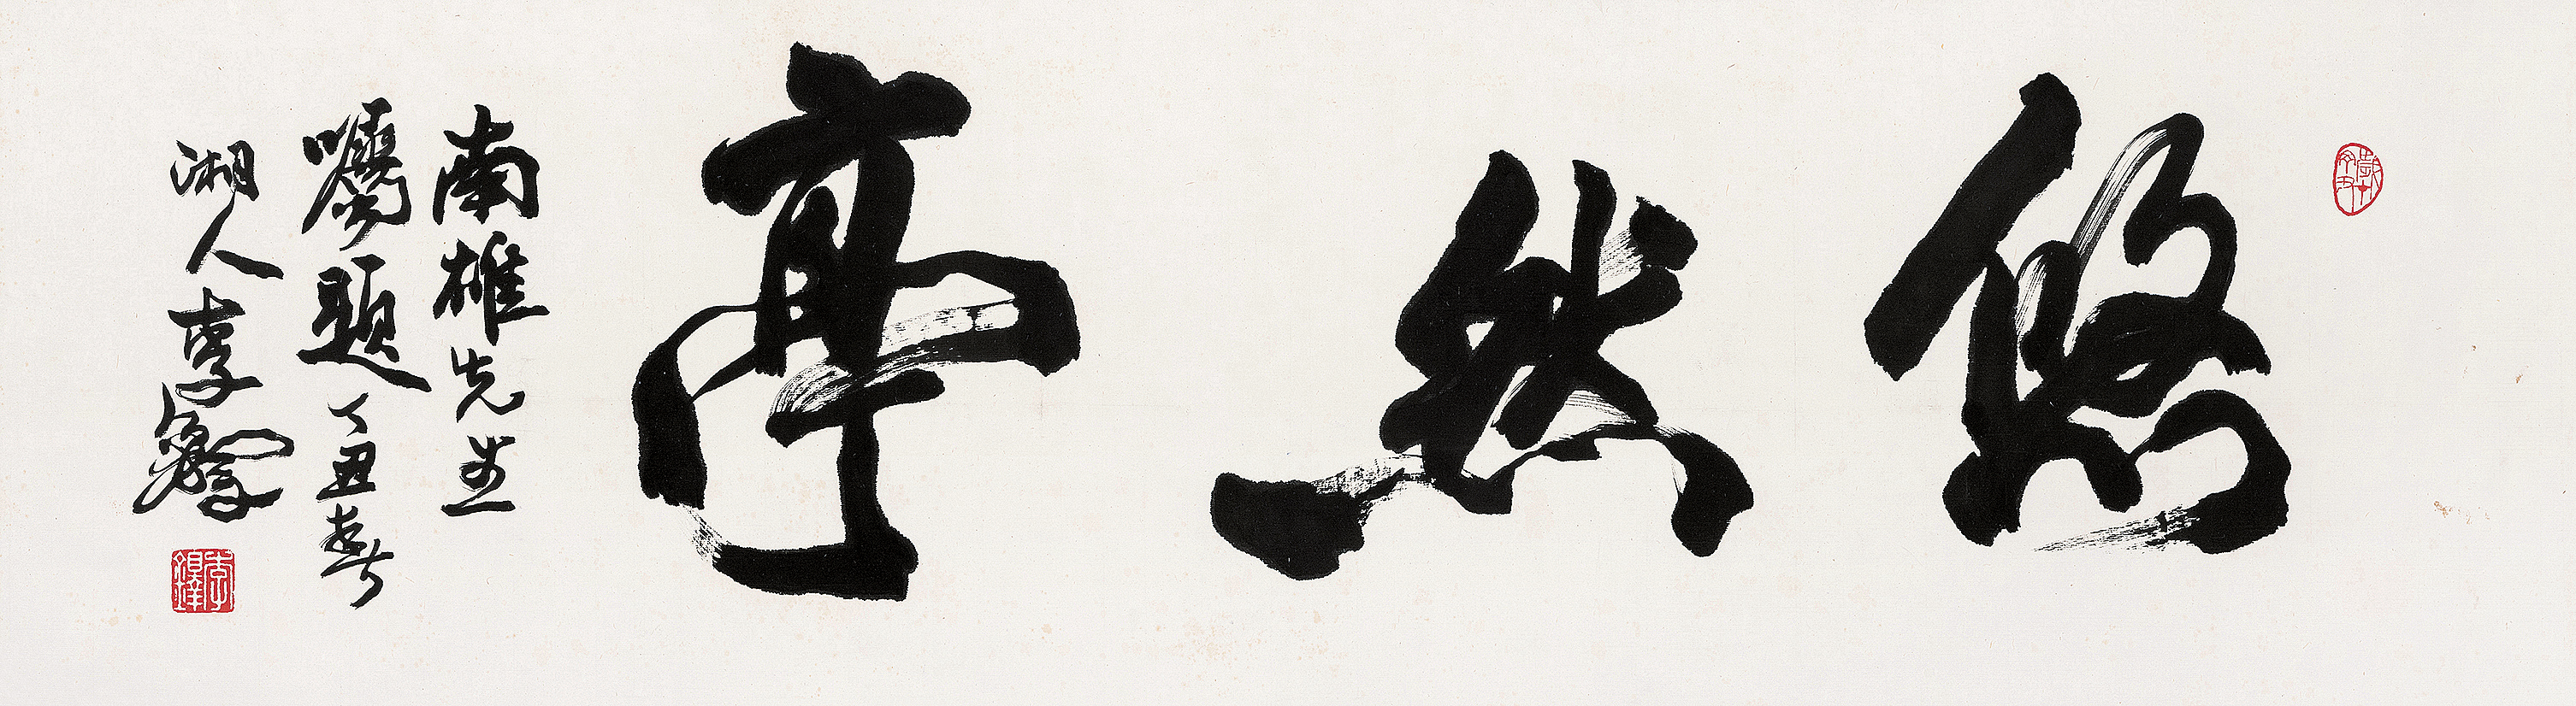 悠然亭
南雄先生
囑題丁丑春
湖人李鐸
李鐸